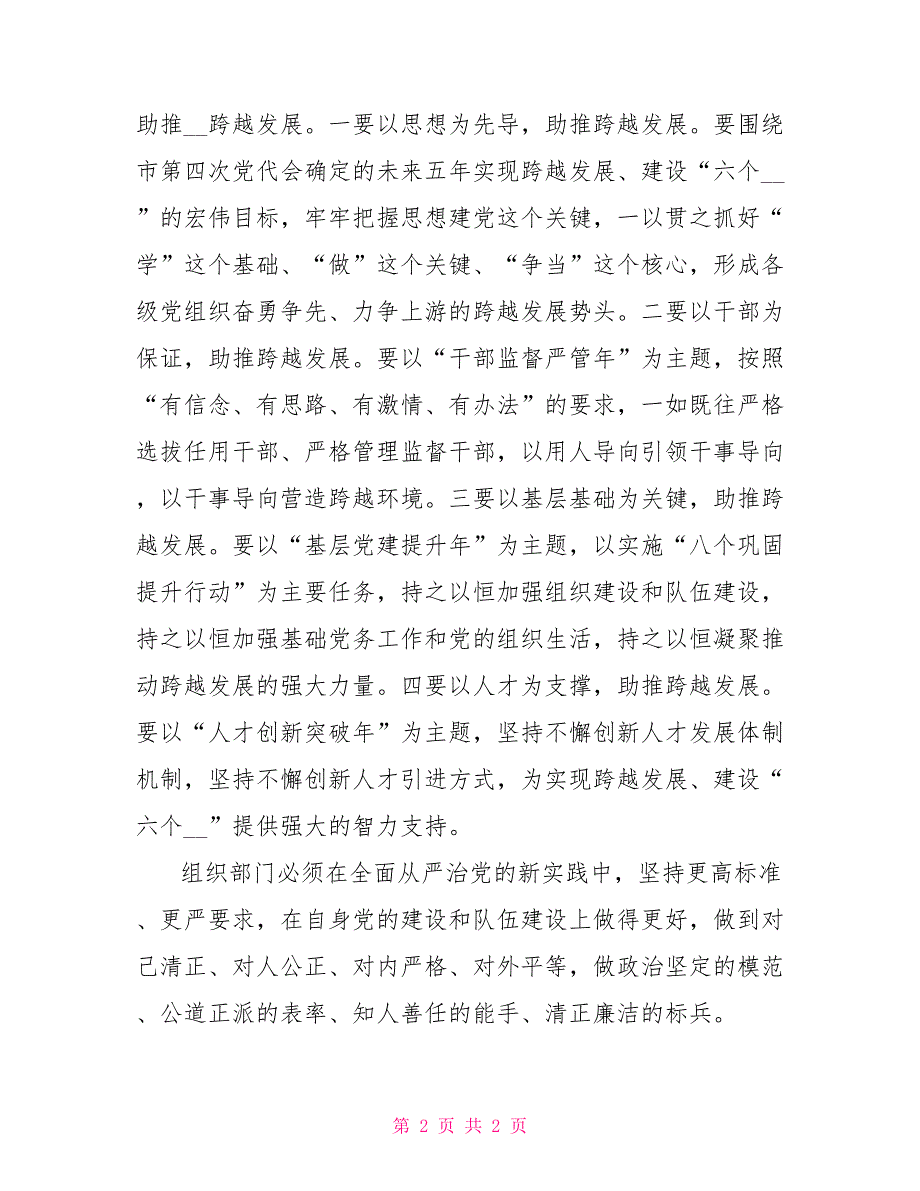 助推__跨越发展。一要以思想为先导，助推跨越发展。要围绕
市第四次党代会确定的未来五年实现跨越发展、建设“六个__
”的宏伟目标，牢牢把握思想建党这个关键，一以贯之抓好“
学”这个基础、“做”这个关键、“争当”这个核心，形成各
级党组织奋勇争先、力争上游的跨越发展势头。二要以干部为
保证，助推跨越发展。要以“干部监督严管年”为主题，按照
“有信念、有思路、有激情、有办法”的要求，一如既往严格
选拔任用干部、严格管理监督干部，以用人导向引领干事导向
，以干事导向营造跨越环境。三要以基层基础为关键，助推跨
越发展。要以“基层党建提升年”为主题，以实施“八个巩固
提升行动”为主要任务，持之以恒加强组织建设和队伍建设，
持之以恒加强基础党务工作和党的组织生活，持之以恒凝聚推
动跨越发展的强大力量。四要以人才为支撑，助推跨越发展。
要以“人才创新突破年”为主题，坚持不懈创新人才发展体制
机制，坚持不懈创新人才引进方式，为实现跨越发展、建设“
六个__”提供强大的智力支持。
组织部门必须在全面从严治党的新实践中，坚持更高标准
、更严要求，在自身党的建设和队伍建设上做得更好，做到对
己清正、对人公正、对内严格、对外平等，做政治坚定的模范
、公道正派的表率、知人善任的能手、清正廉洁的标兵。
第 2 页 共 2 页